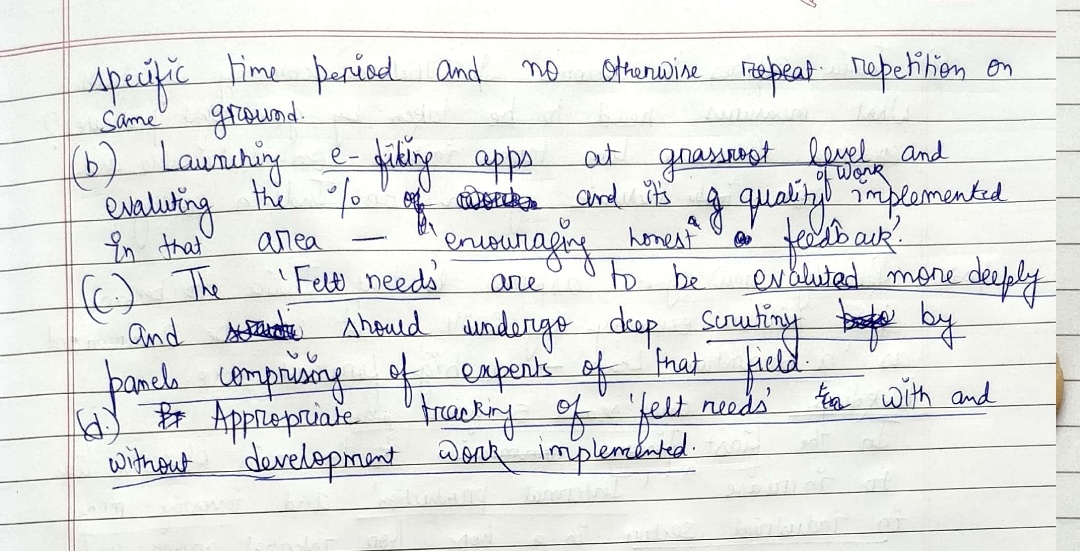 specific time period and no otherwise repeat repetition on
same ground.
(b) Launching e-filing apps at grassroot level and
evaluting the % of work and it's quality of work implemented
in that area — 'encouraging honest feedback'.
(c.) The 'Felt needs' are to be evaluted more deeply
and should undergo deep scrutiny by
panels comprising of experts of that field.
(d.) Appropriate tracking of 'felt needs' with and
without development work implemented.